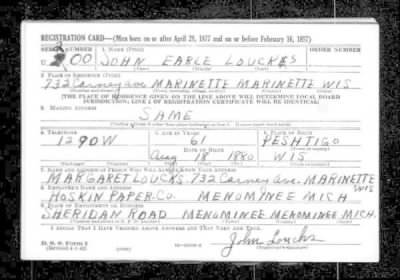 REGISTRATION CARD—(Men born on or after April 28, 1877 and on or before February 16, 1897)
SERIAL NUMBER 1. NAME (Print) ORDER NUMBER
00 JOHN EARLE LOUCKES
2. PLACE OF RESIDENCE (Print)
732 Carney ave MARINETTE MARINETTE WIS
[THE PLACE OF RESIDENCE GIVEN ON THE LINE ABOVE WILL DETERMINE LOCAL BOARD
JURISDICTION; LINE 2 OF REGISTRATION CERTIFICATE WILL BE IDENTICAL]
3. MAILING ADDRESS
SAME
4. TELEPHONE 5. AGE IN YEARS 6. PLACE OF BIRTH
1290W 61 PESHTIGO
DATE OF BIRTH
Aug 18 1880 WIS
7. NAME AND ADDRESS OF PERSON WHO WILL ALWAYS KNOW YOUR ADDRESS
MARGARET LOUCKS 732 Carney Ave. MARINETTE WIS
8. EMPLOYER'S NAME AND ADDRESS
HOSKIN PAPER Co. MENOMINEE MICH
9. PLACE OF EMPLOYMENT OR BUSINESS
SHERIDAN ROAD MENOMINEE MENOMINEE MICH.
I AFFIRM THAT I HAVE VERIFIED ABOVE ANSWERS AND THAT THEY ARE TRUE.
D. S. S. Form 1
(Revised 4-1-42) (over)
John Loucks